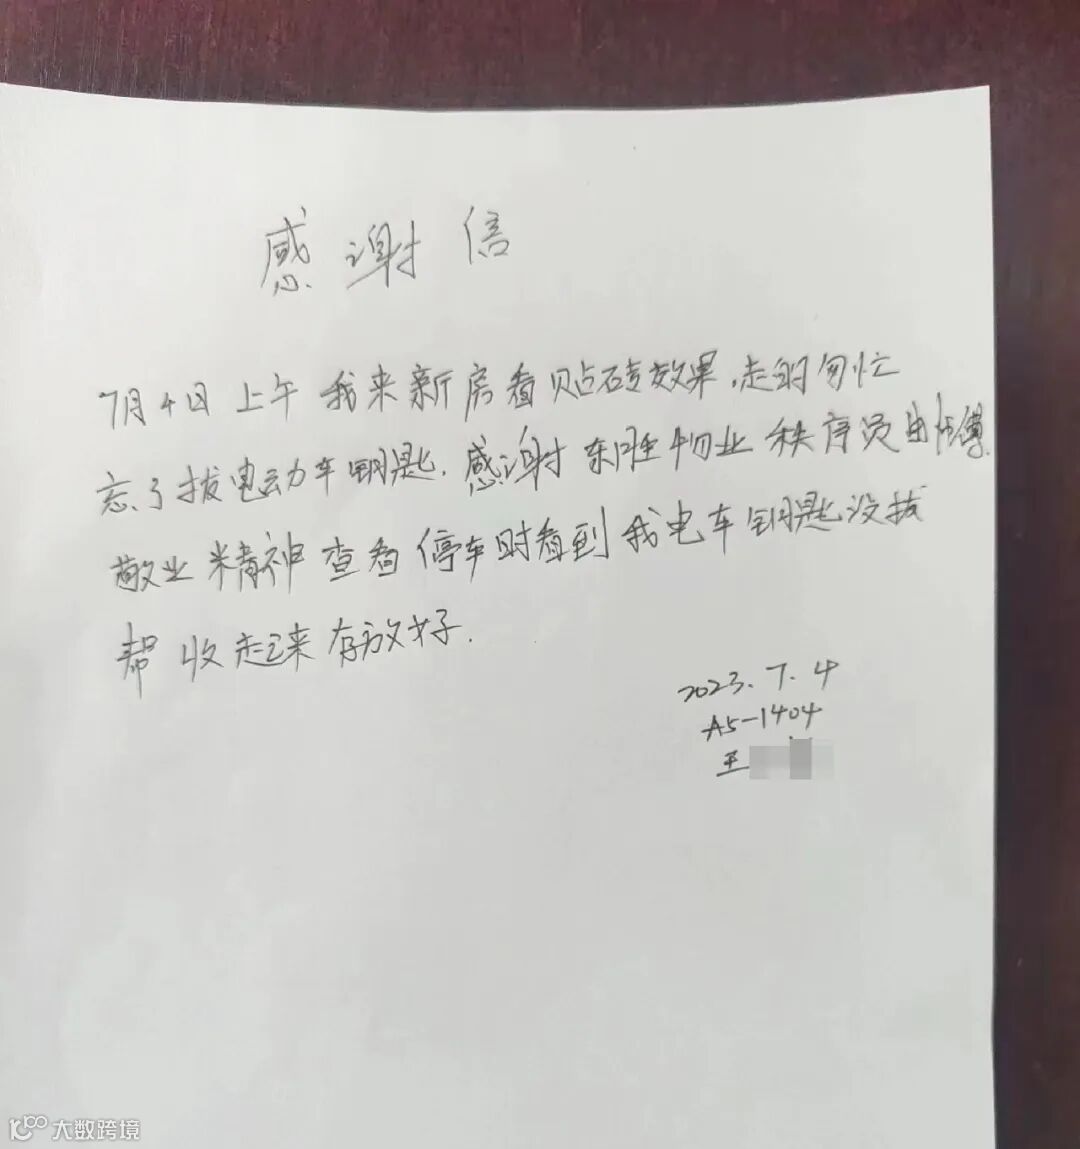 感谢信
7月4日上午我来新房看贴砖效果,走的匆忙
忘了拔电动车钥匙.感谢东胜物业秩序员曲师傅
敬业精神查看停车时看到我电车钥匙没拔
帮收起来存放好.
2023.7.4
A5-1404
王
大数跨境